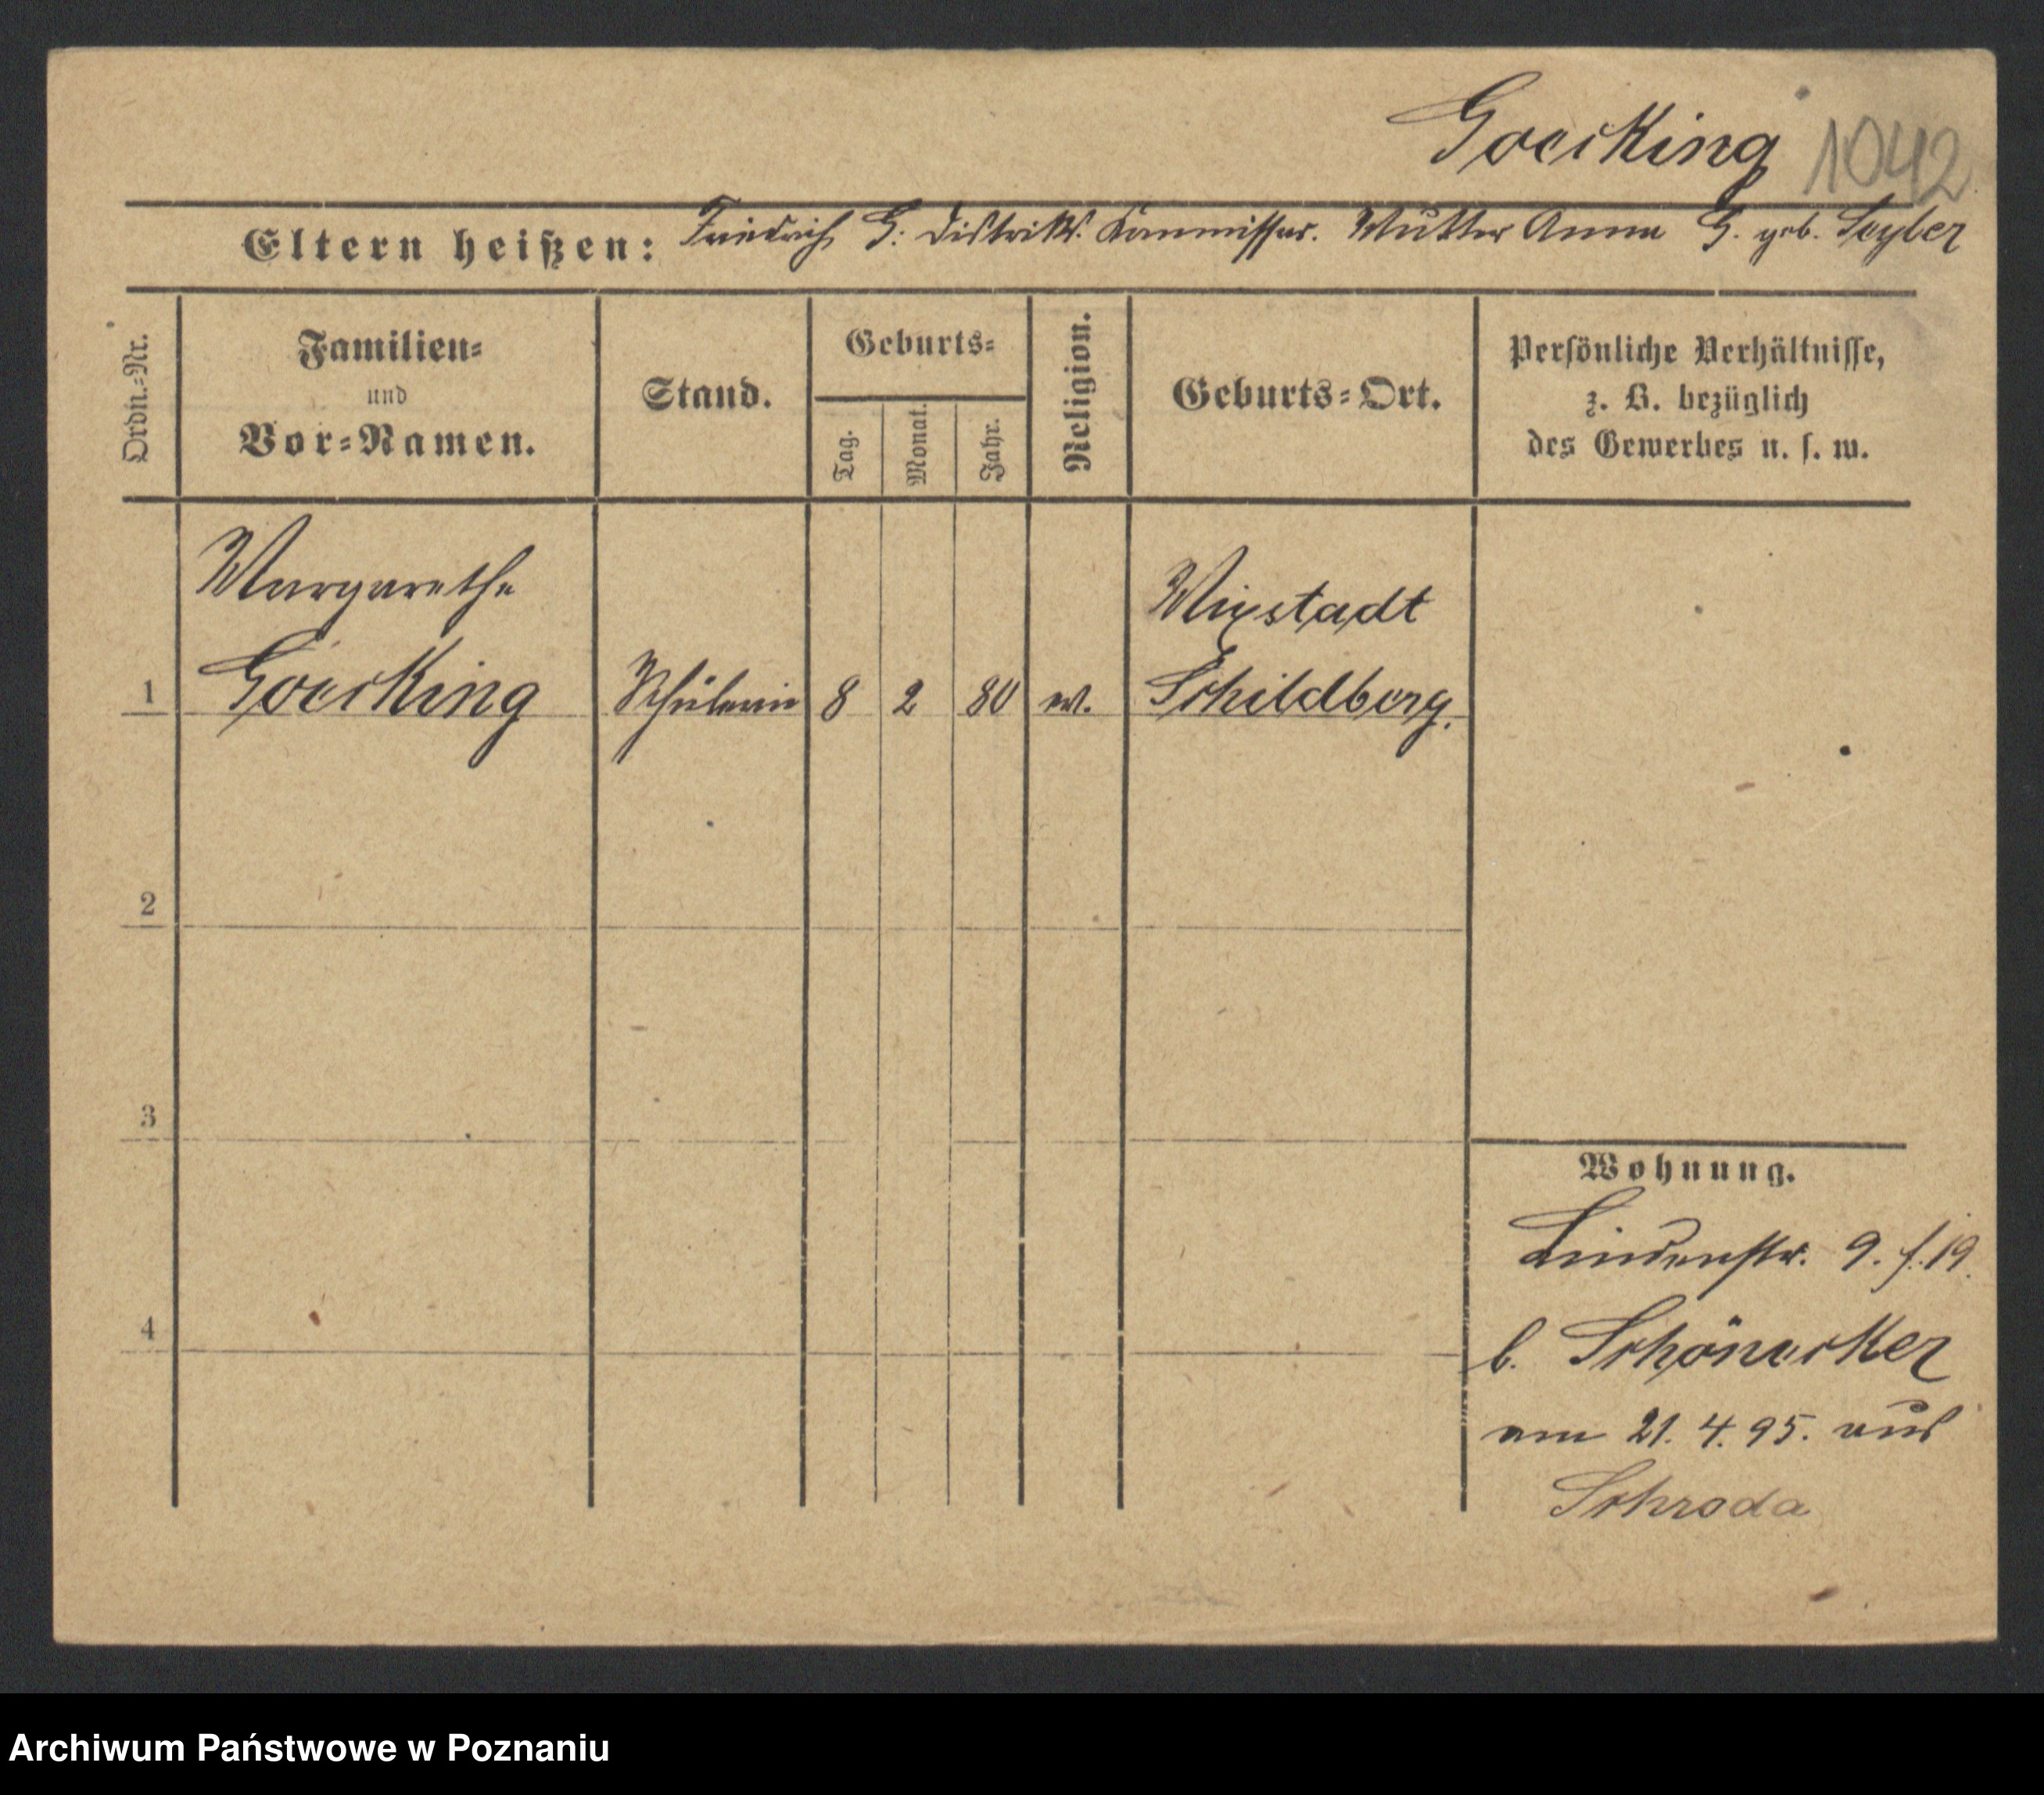 Goecking 1042
Eltern heißen: Friedrich G. Distrikts. Kommissar. Mutter Anna G. geb. Seyler
Ordn.-Nr.
Familien-
und
Vor-Namen.
Stand.
Geburts-
Tag.
Monat.
Jahr.
Religion.
Geburts-Ort.
Persönliche Verhältnisse,
z. B. bezüglich
des Gewerbes u. s. w.
Margarethe
Mixstadt
1 Goecking Schülerin 8 2 80 ev. Schildberg.
2
3
4
Wohnung.
Lindenstr. 9. 19.
b. Schönecker
am 21. 4. 95. aus
Schroda
Archiwum Państwowe w Poznaniu